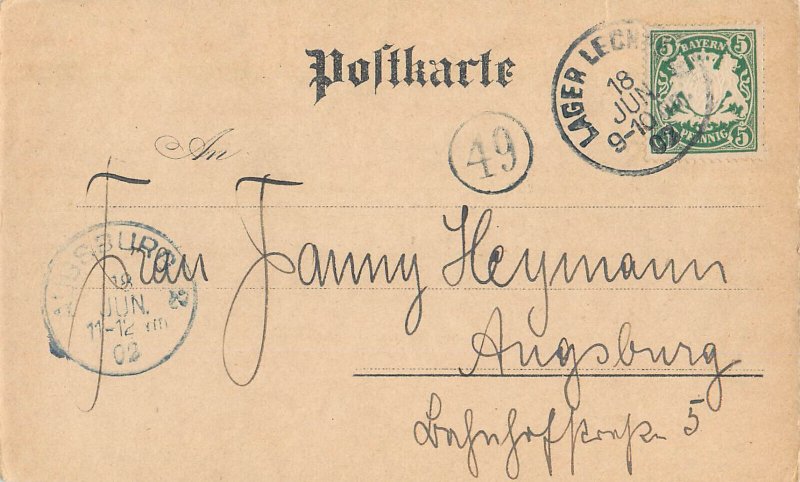 Postkarte
5 BAYERN 5
5 PFENNIG 5
LAGER LECH
18
JUN
9-10 Vm
02
49
An
Frau Fanny Heymann
AUGSBURG 2
JUN.
11-12 Vm
02
Augsburg
Bahnhofstraße 5